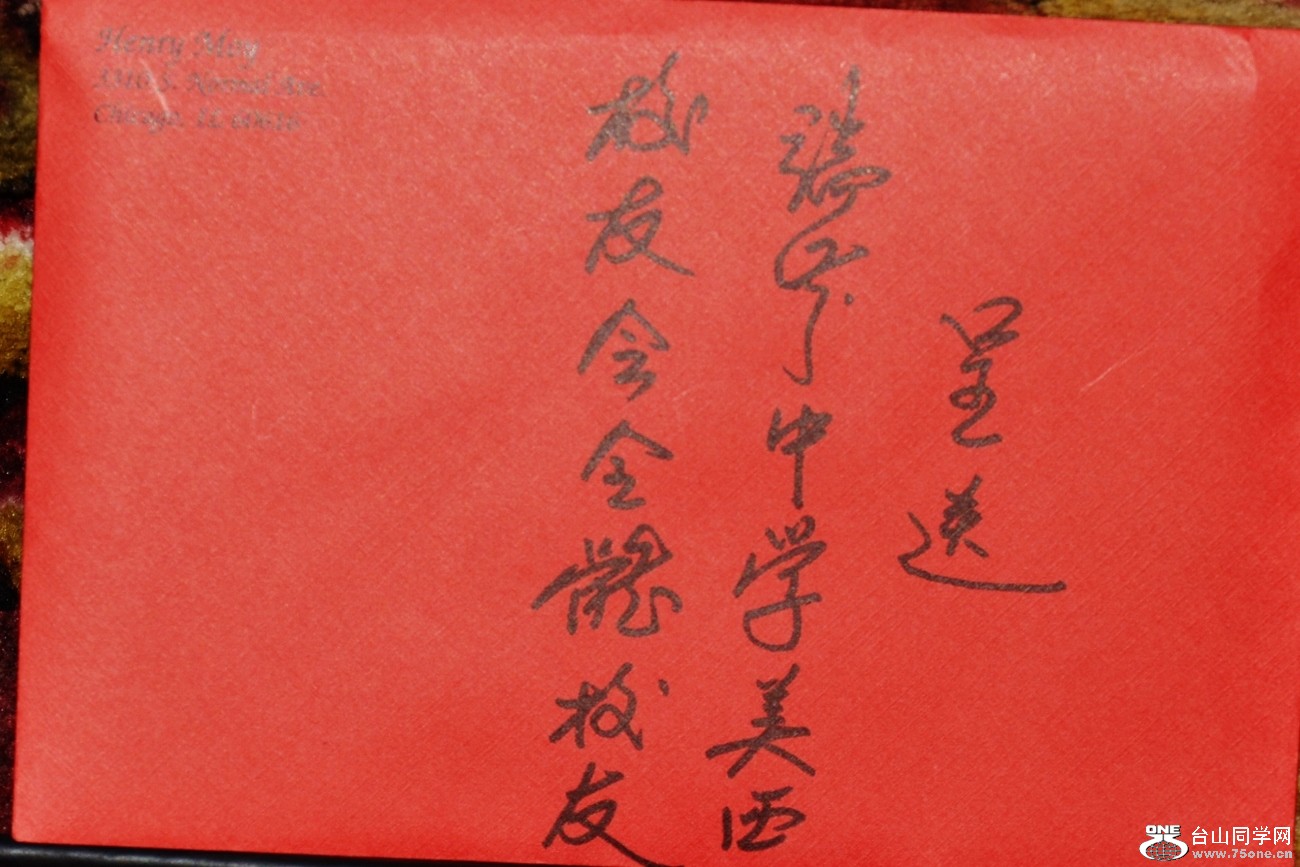 Henry Moy
S. Normal Ave.
Chicago, IL 60616
呈送
端芬中学美西
校友会全體校友
ONE
台山同学网
www.75one.cn